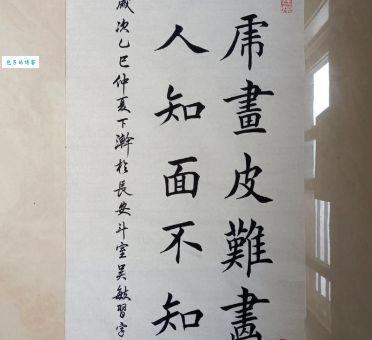 虎畫皮難畫
人知面不知
歲次乙巳仲夏下澣於長安斗室吴敏習字